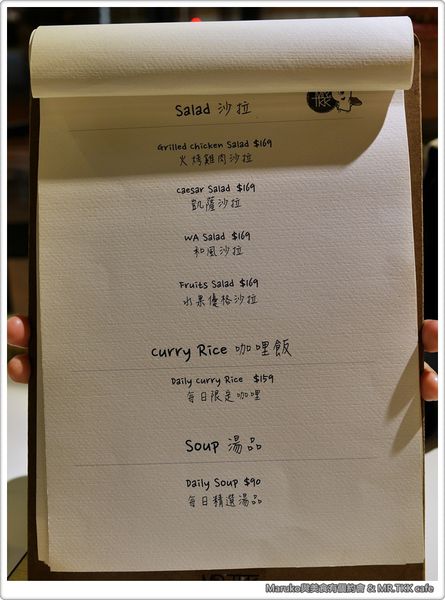 Salad 沙拉
Grilled Chicken Salad $169
火烤雞肉沙拉
Caesar Salad $169
凱薩沙拉
WA Salad $169
和風沙拉
Fruits Salad $169
水果優格沙拉
Curry Rice 咖哩飯
Daily Curry Rice $159
每日限定咖哩
Soup 湯品
Daily Soup $90
每日精選湯品
Maruko與美食有個約會 & MR.TKK cafe